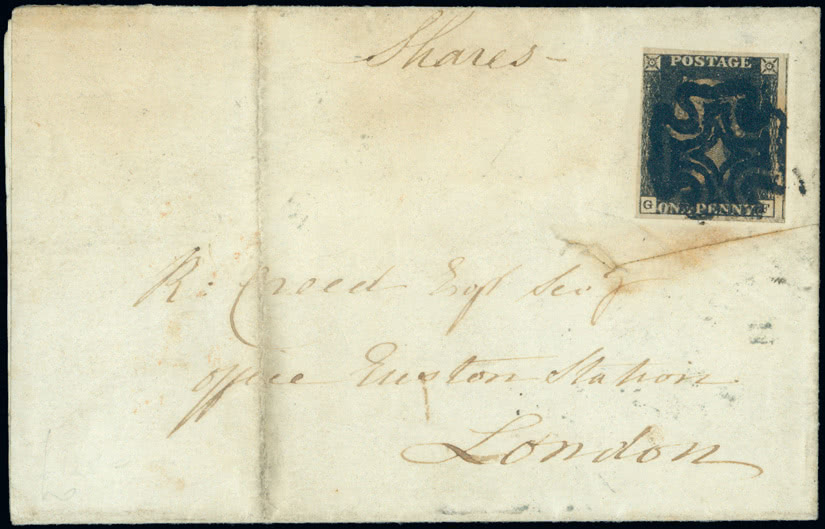 Shares –
POSTAGE
G ONE PENNY F
R: Creed Esqr Secy
Office Euston Station
London